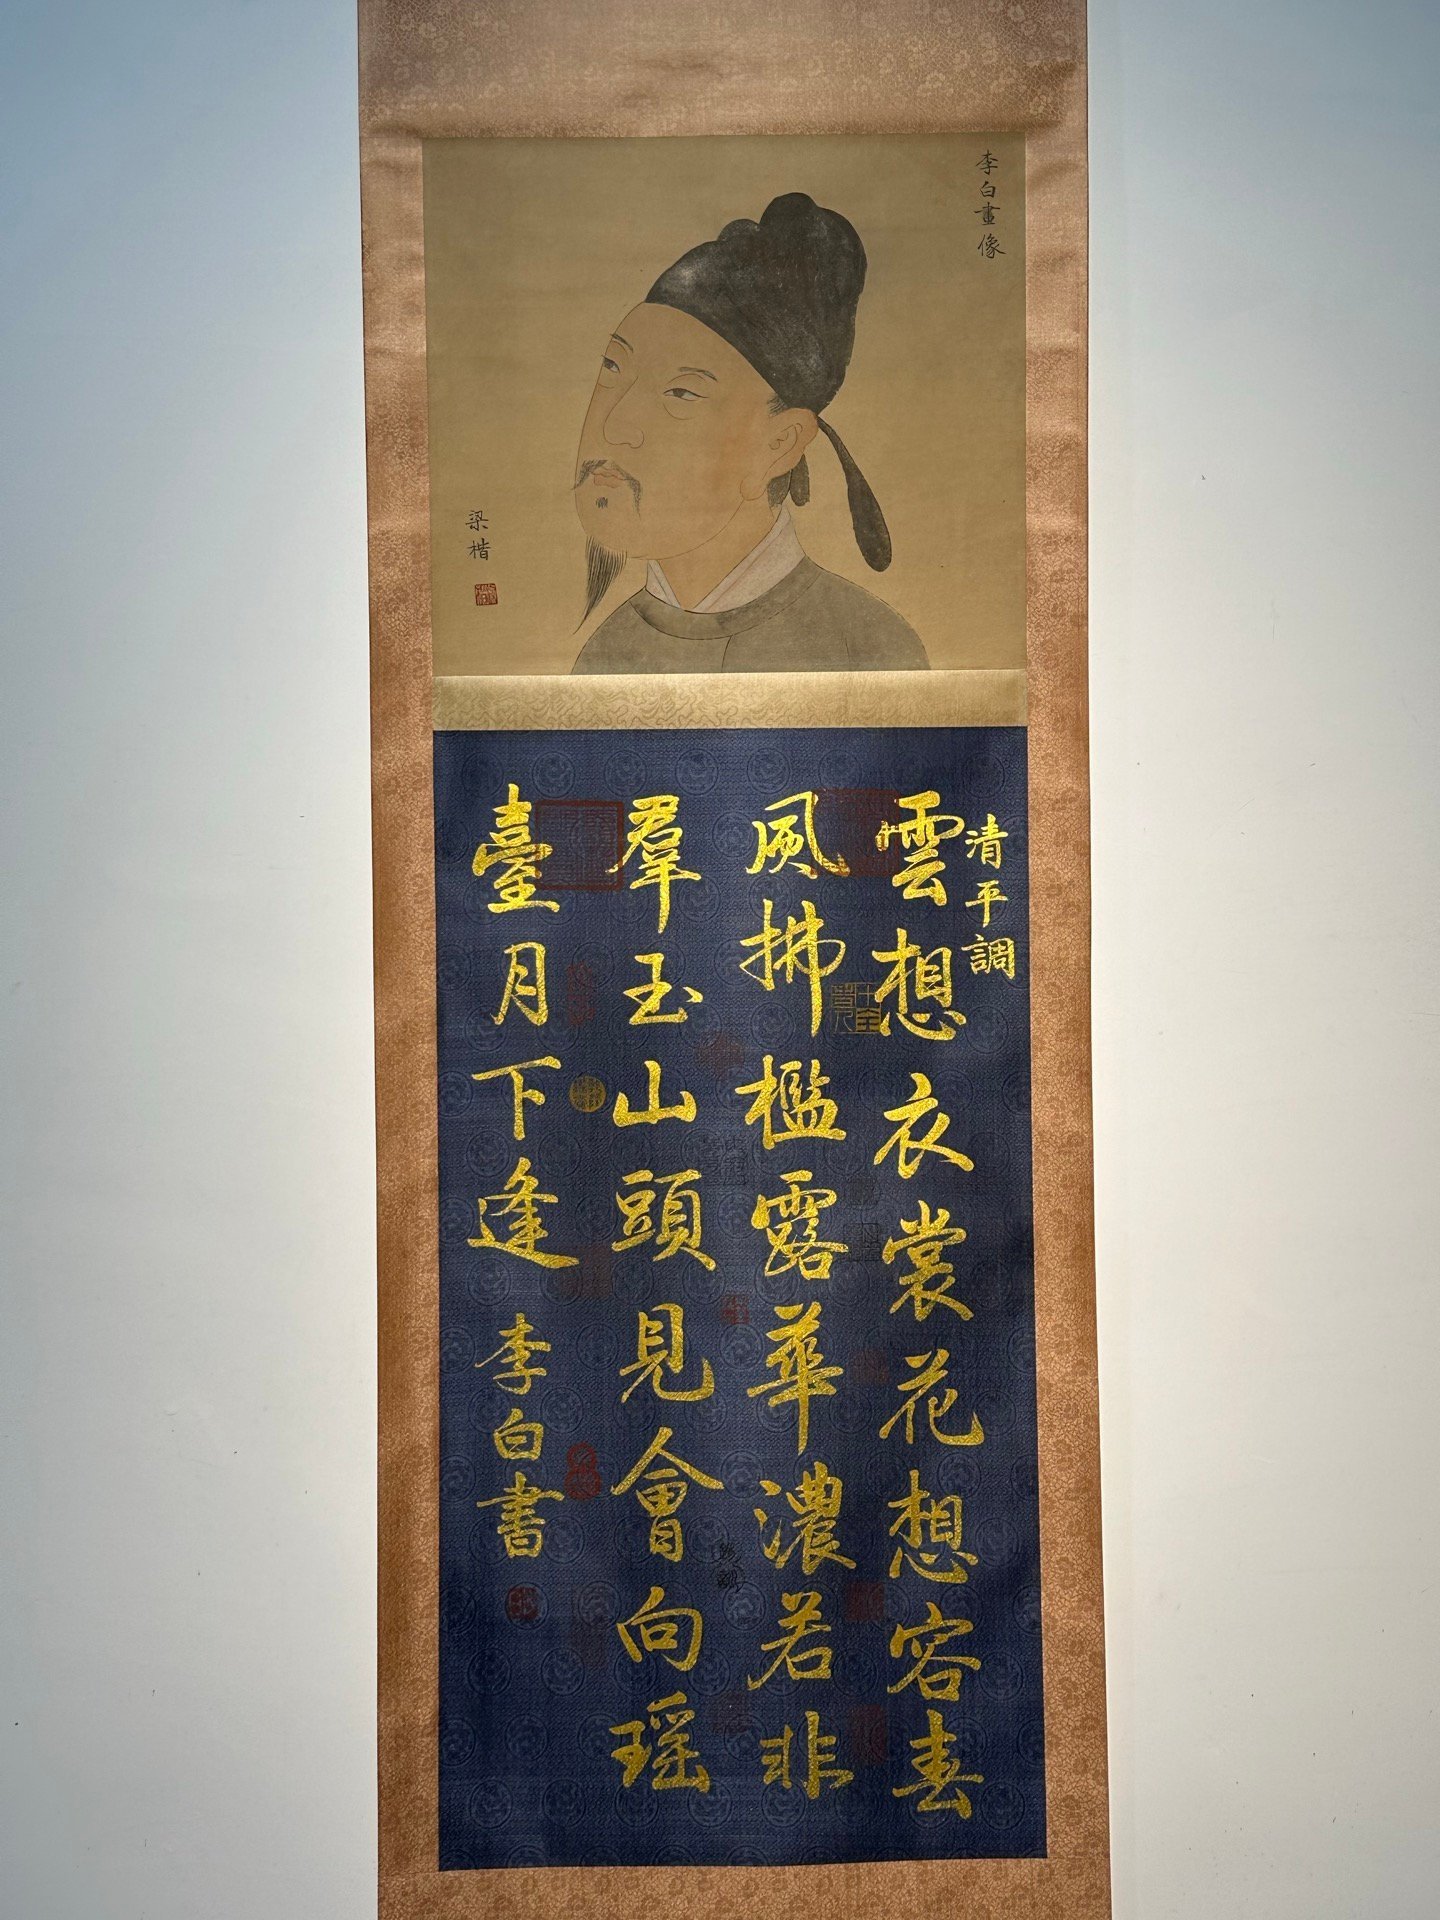 李白畫像
梁楷
清平調
雲想衣裳花想容春
風拂檻露華濃若非
羣玉山頭見會向瑶
臺月下逢 李白書